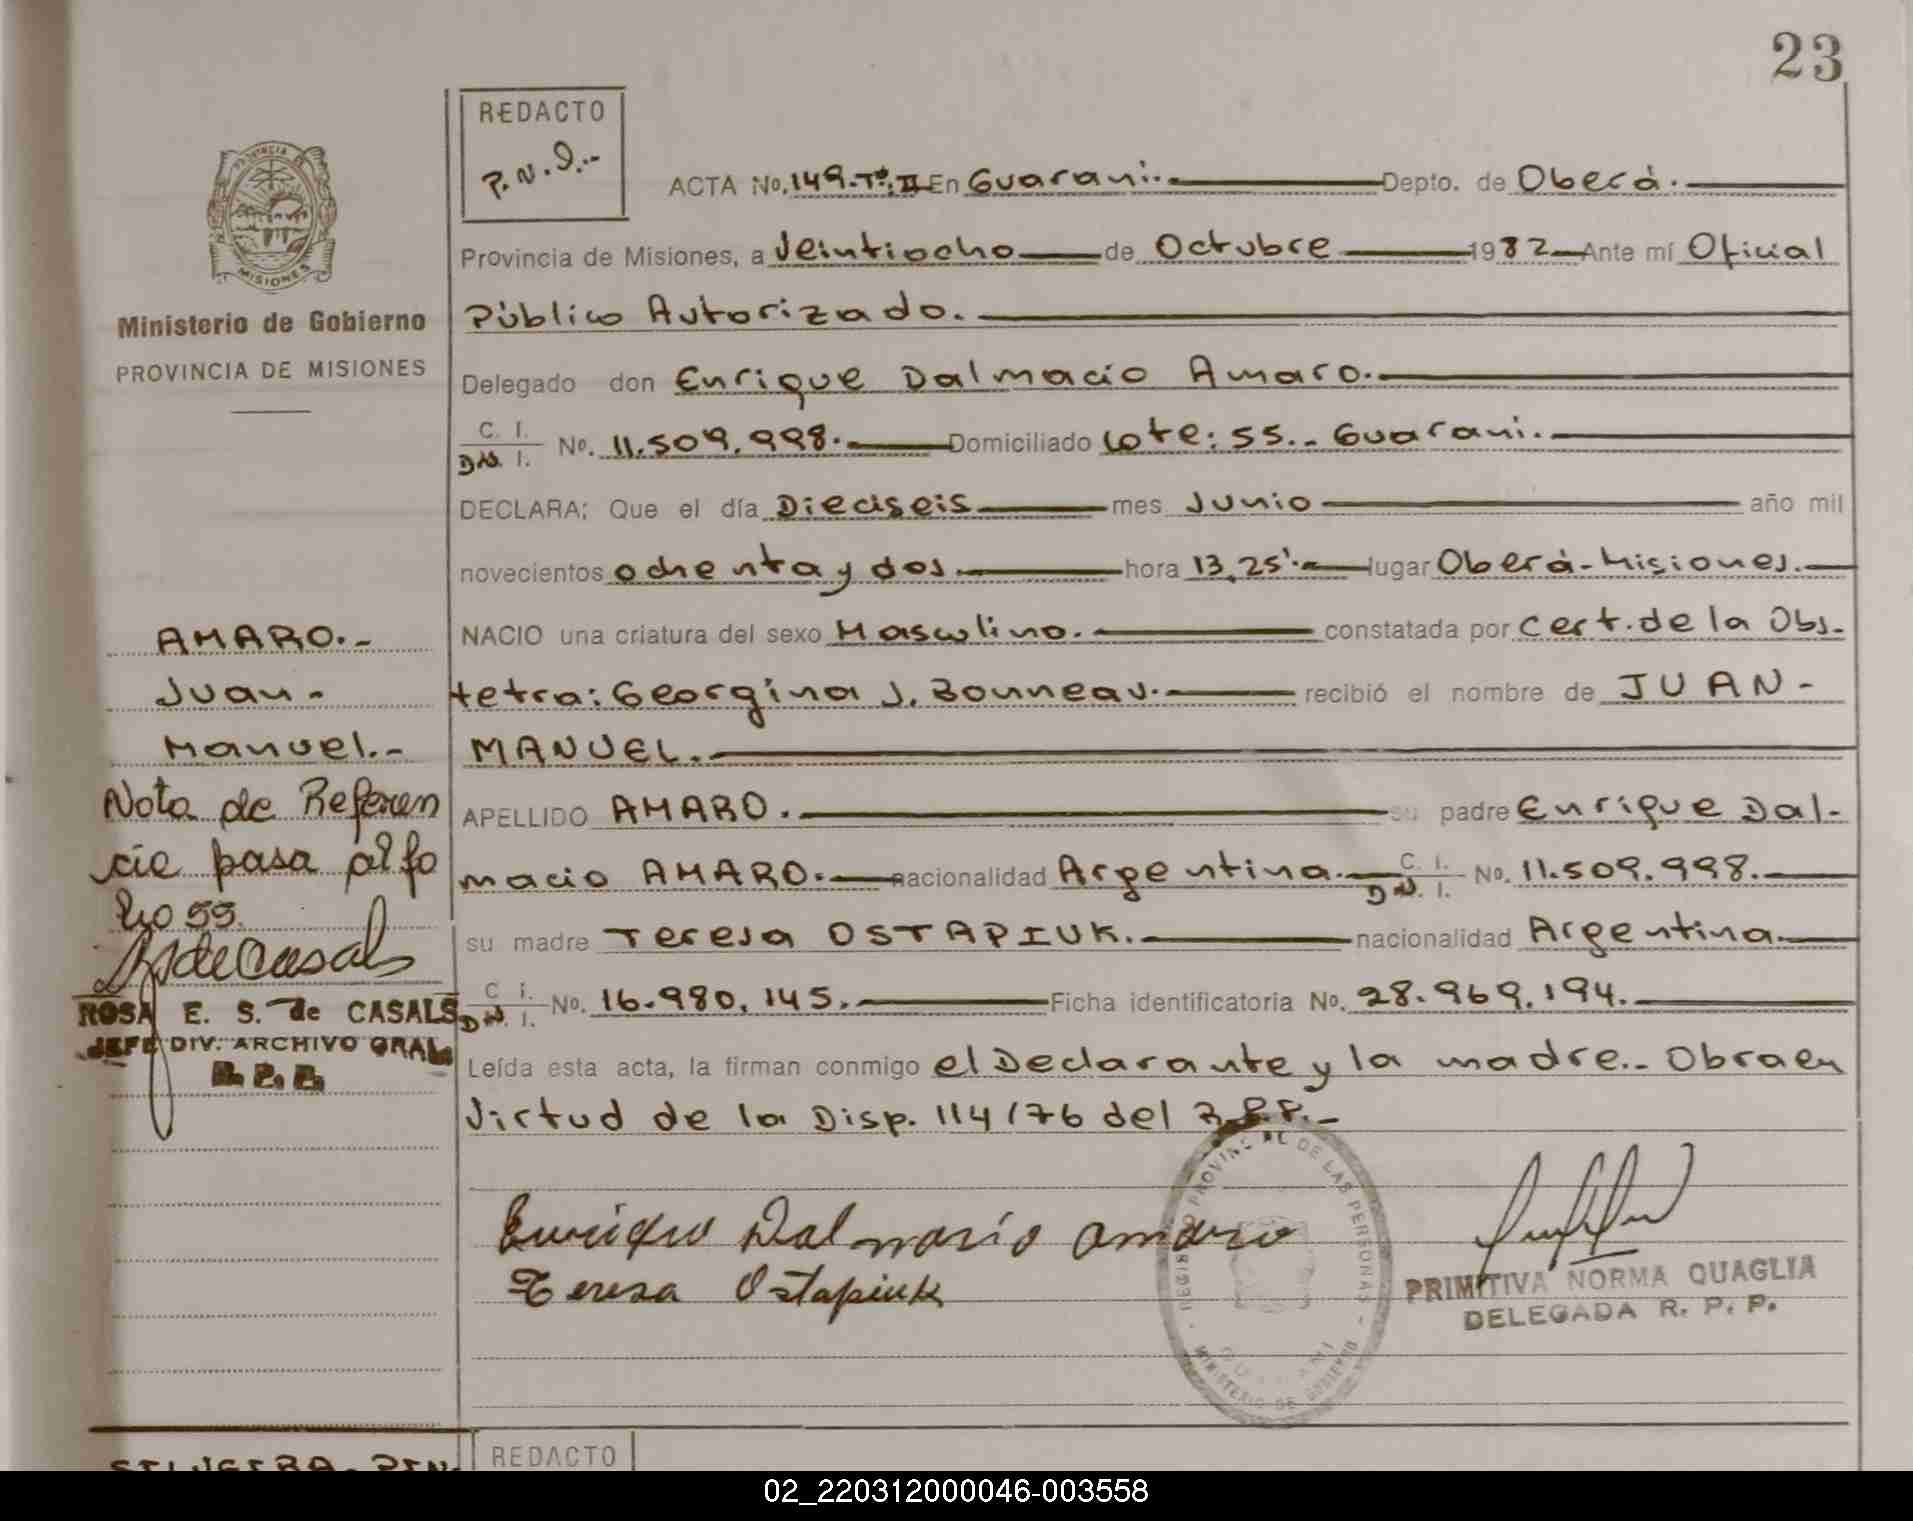 23
REDACTO
P.N.Q.-
ACTA No. 149-Tº: II En Guaraní.- Depto. de Oberá.
Provincia de Misiones, a Veintiocho de Octubre 1982 Ante mí Oficial
Público Autorizado.
Ministerio de Gobierno
PROVINCIA DE MISIONES
Delegado don Enrique Dalmacio Amaro.
C. I.
D.N. I. No. 11.509.998.- Domiciliado Lote: 55.- Guaraní.
DECLARA; Que el día Dieciseis mes Junio año mil
novecientos ochenta y dos. hora 13,25'.- lugar Oberá-Misiones.
NACIO una criatura del sexo Masculino. constatada por Cert. de la Obs-
tetra: Georgina J. Bonneau. recibió el nombre de JUAN-
MANUEL.
APELLIDO AMARO. su padre Enrique Dal-
macio AMARO. nacionalidad Argentina. C. I. D.N. I. No. 11.509.998.
su madre Teresa OSTAPIUK. nacionalidad Argentina.
C I. D.N. I. No. 16.980.145. Ficha identificatoria No. 28.969.194.
Leída esta acta, la firman conmigo el Declarante y la madre.- Obra en
Virtud de la Disp. 114/76 del R.P.P.-
Enrique Dalmacio Amaro
Teresa Ostapiuk
REGISTRO PROVINCIAL DE LAS PERSONAS
MINISTERIO DE GOBIERNO
PRIMITIVA NORMA QUAGLIA
DELEGADA R. P. P.
AMARO.-
Juan-
Manuel.-
Nota de Referen
cia pasa al fo
lio 55.
RSdeCasals
ROSA E. S. de CASALS
JEFE DIV. ARCHIVO GRAL.
R. P. P.
REDACTO
02_220312000046-003558